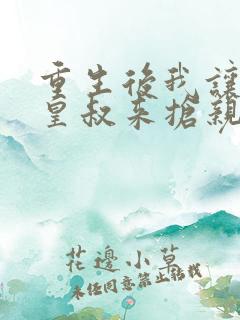 重生後我讓
皇叔来搶親
花邊小草
未经同意禁止转载